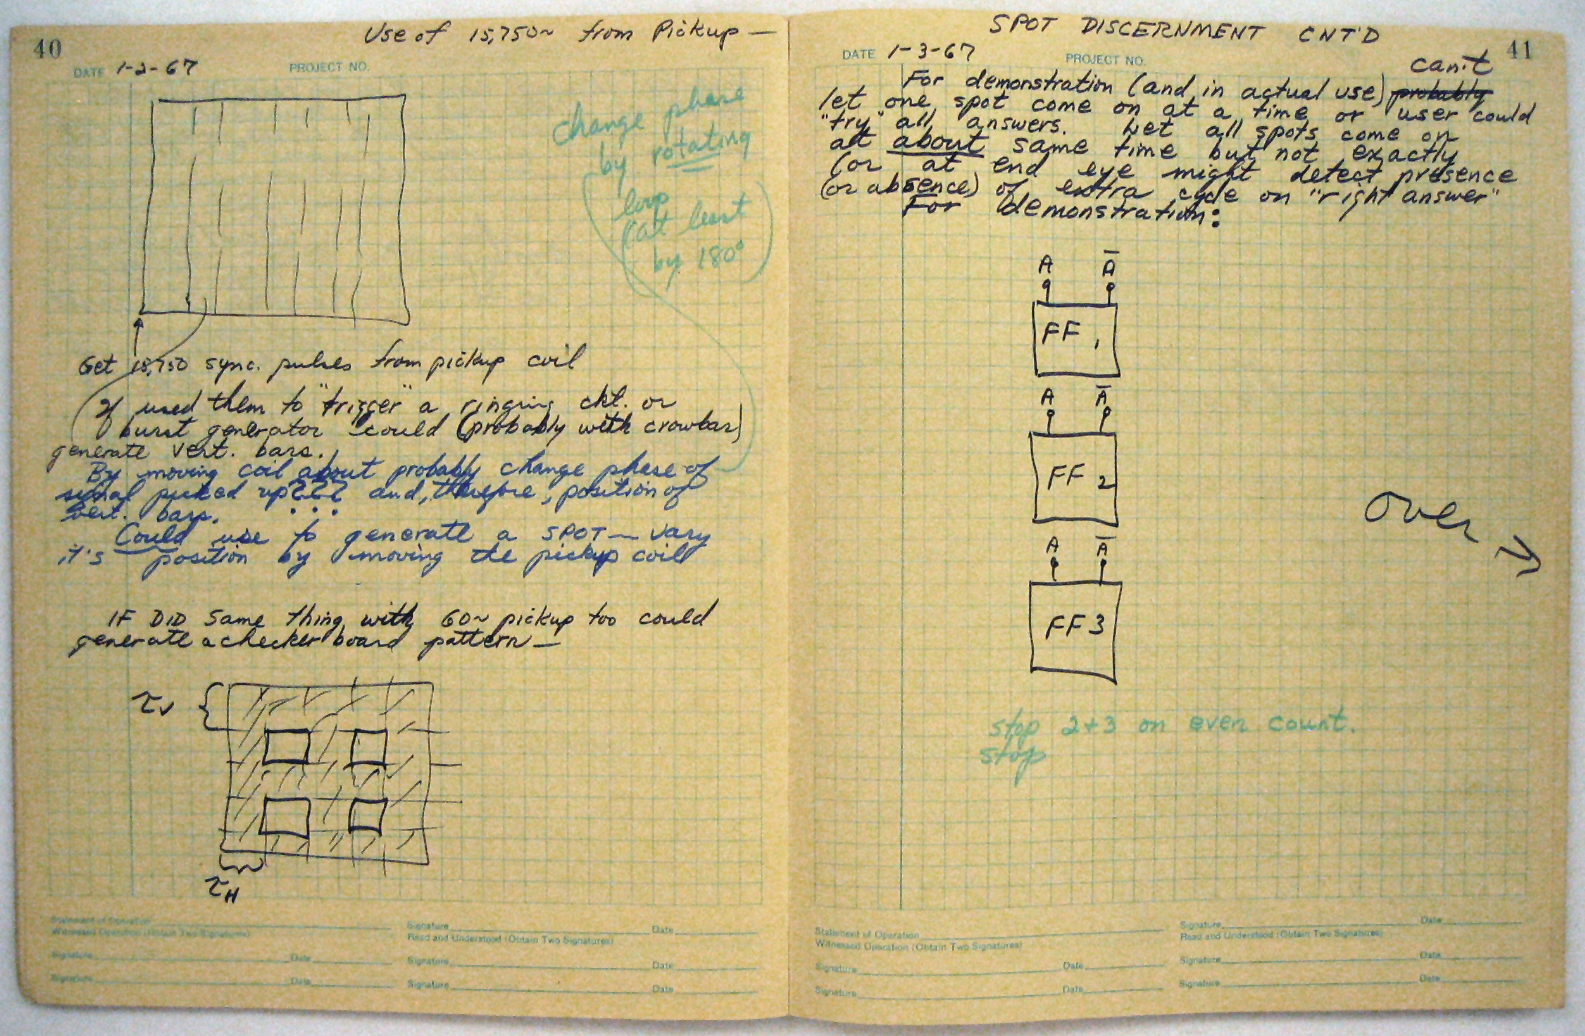 40
Use of 15,750~ from Pickup —
DATE 1-2-67 PROJECT NO.
change phase
by rotating
loop
(at least
by 180°)
Get 15,750 sync. pulses from pickup coil
If used them to "trigger" a ringing ckt. or
burst generator could (probably with crowbar)
generate vert. bars.
By moving coil about probably change phase of
signal picked up??? and, therefore, position of
vert. bars.
Could use to generate a SPOT — vary
it's position by moving the pickup coil
IF DID same thing with 60~ pickup too could
generate a checker board pattern —
τV
τH
Statement of Operation
Witnessed Operation (Obtain Two Signatures)
Signature Date
Read and Understood (Obtain Two Signatures)
Signature Date Signature Date
Signature Date Signature Date
SPOT DISCERNMENT CNT'D
41
DATE 1-3-67 PROJECT NO.
can't
For demonstration (and in actual use) probably
let one spot come on at a time or user could
"try" all answers. Let all spots come on
at about same time but not exactly
(or at end eye might detect presence
(or absence) of extra cycle on "right answer"
For demonstration:
A Ā
FF 1
A Ā
FF 2
A Ā
FF 3
over →
stop 2+3 on even count.
stop
Statement of Operation
Witnessed Operation (Obtain Two Signatures)
Signature Date
Read and Understood (Obtain Two Signatures)
Signature Date Signature Date
Signature Date Signature Date